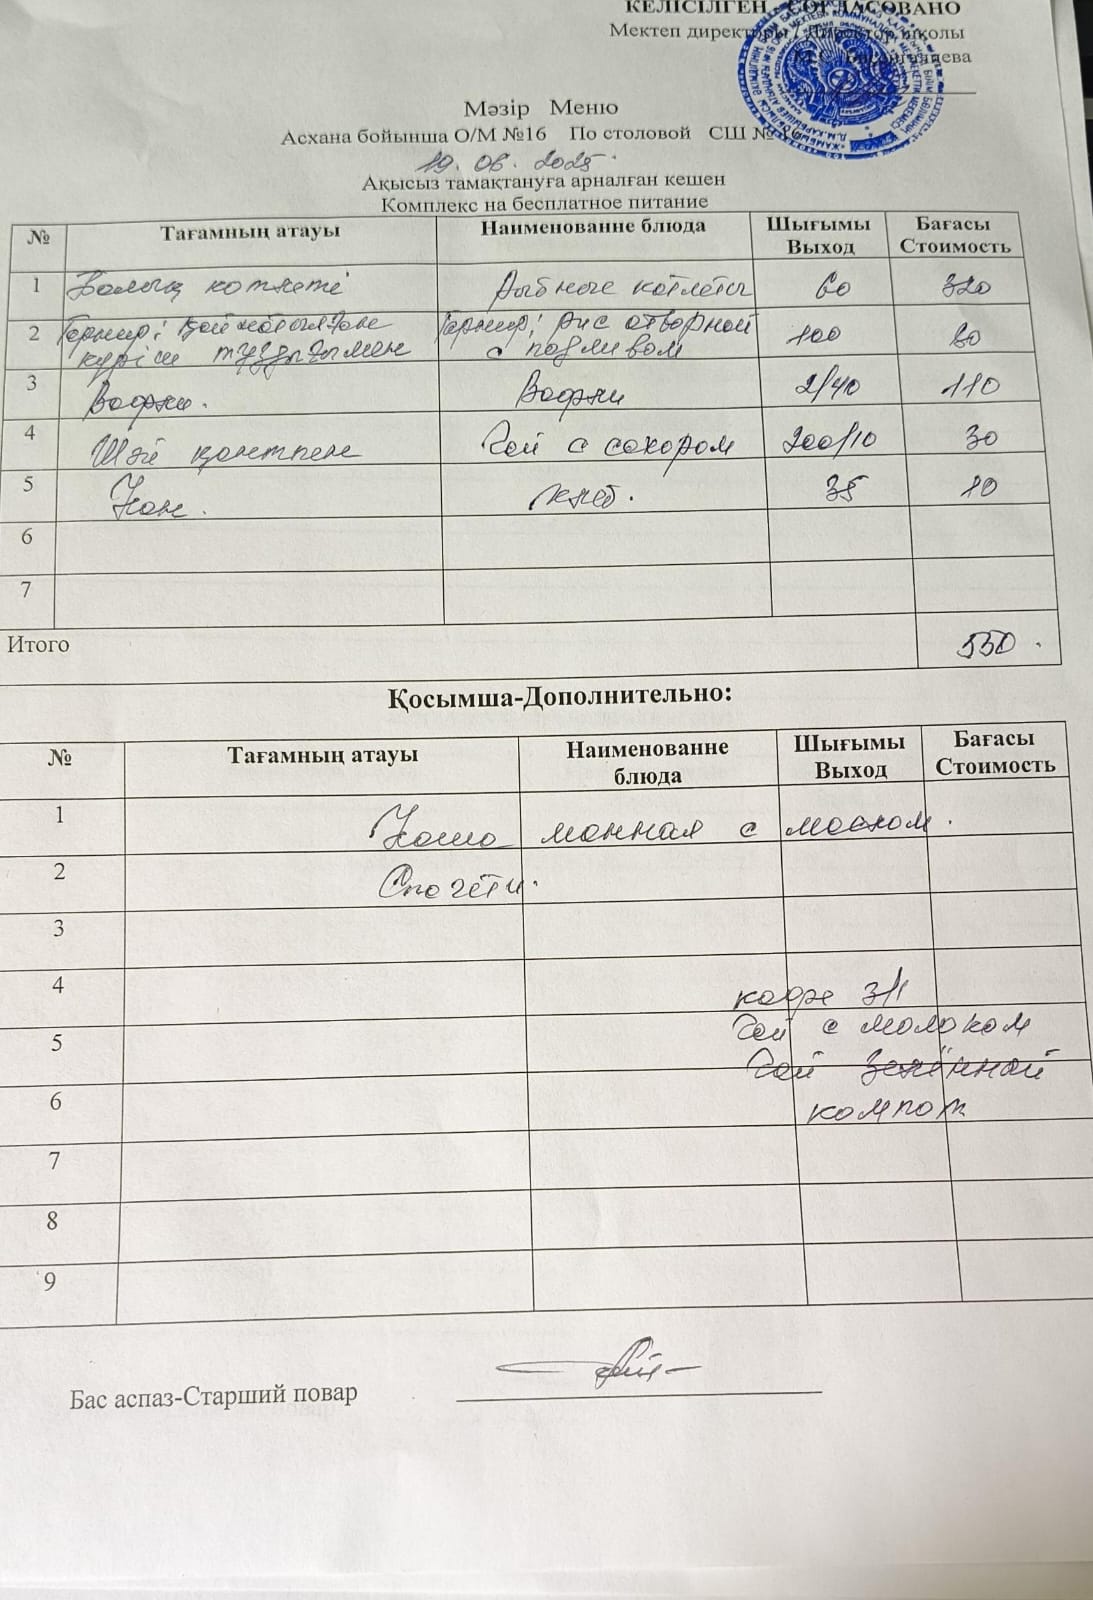 КЕЛІСІЛГЕН СОГЛАСОВАНО
Мектеп директоры / Директор школы
Мәзір Меню
Асхана бойынша О/М №16 По столовой СШ №16
19.06.2025.
Ақысыз тамақтануға арналған кешен
Комплекс на бесплатное питание
№ Тағамның атауы Наименованне блюда Шығымы Выход Бағасы Стоимость
1 Балық котлеті Рыбные котлеты 60 320
2 Гарнир: Қайнатылған күріш тұздығымен Гарнир: Рис отворной с подливом 100 80
3 Вафли. Вафли 2/40 110
4 Шәй қантпен Чай с сахаром 200/10 30
5 Нан. Хлеб. 35 10
6
7
Итого 550.
Қосымша-Дополнительно:
№ Тағамның атауы Наименованне блюда Шығымы Выход Бағасы Стоимость
1 Каша манная с маслом.
2 Спагети.
3
4 кофе 3/1
5 Чай с молоком
Чай Зелённой
6 компот
7
8
9
Бас аспаз-Старший повар